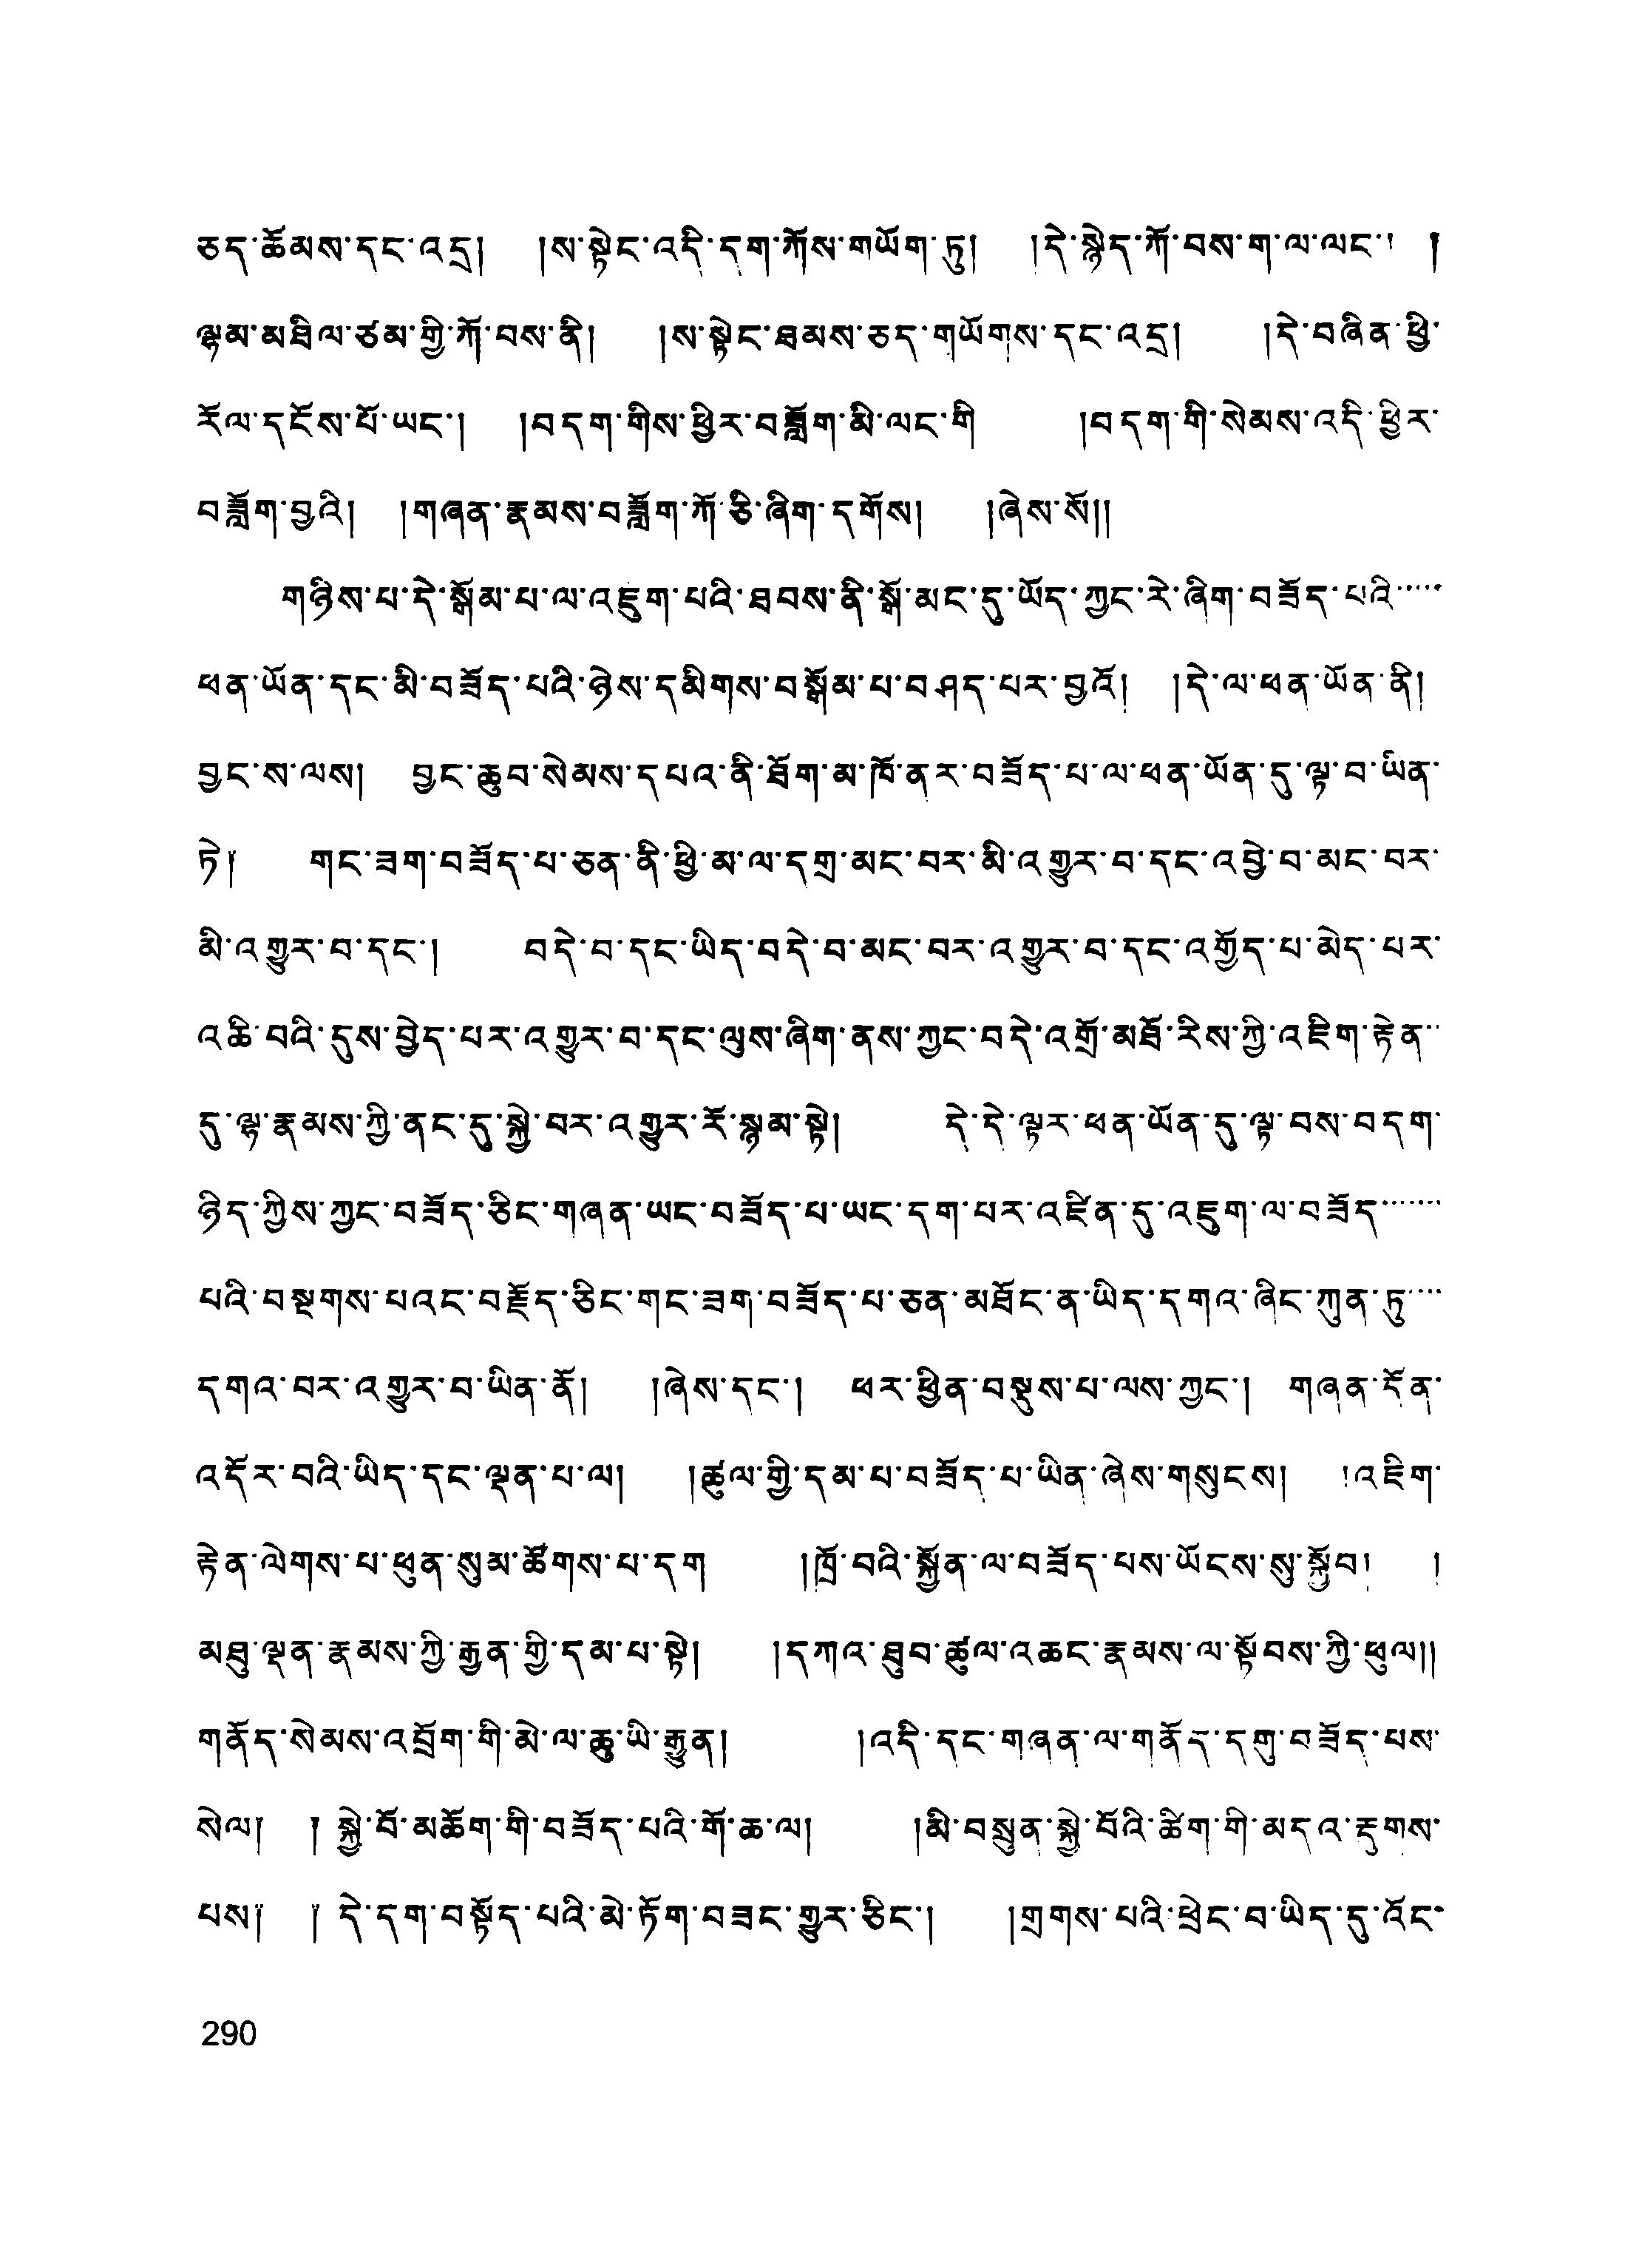 ཅད་ཆོམས་དང་འདྲ། །ས་སྟེང་འདི་དག་ཀོས་གཡོག་ཏུ། །དེ་སྙེད་ཀོ་བས་ག་ལ་ལང་། །
ལྷམ་མཐིལ་ཙམ་གྱི་ཀོ་བས་ནི། །ས་སྟེང་ཐམས་ཅད་གཡོགས་དང་འདྲ། །དེ་བཞིན་ཕྱི་
རོལ་དངོས་པོ་ཡང་། །བདག་གིས་ཕྱིར་བཟློག་མི་ལང་གི །བདག་གི་སེམས་འདི་ཕྱིར་
བཟློག་བྱའི། །གཞན་རྣམས་བཟློག་ཀོ་ཅི་ཞིག་དགོས། །ཞེས་སོ།།
གཉིས་པ་དེ་སྒོམ་པ་ལ་འཇུག་པའི་ཐབས་ནི་སྒོ་མང་དུ་ཡོད་ཀྱང་རེ་ཞིག་བཟོད་པའི་་་་་
ཕན་ཡོན་དང་མི་བཟོད་པའི་ཉེས་དམིགས་བསྒོམ་པ་བཤད་པར་བྱའོ། །དེ་ལ་ཕན་ཡོན་ནི།
བྱང་ས་ལས། བྱང་ཆུབ་སེམས་དཔའ་ནི་ཐོག་མ་ཁོ་ནར་བཟོད་པ་ལ་ཕན་ཡོན་དུ་ལྟ་བ་ཡིན་
ཏེ། གང་ཟག་བཟོད་པ་ཅན་ནི་ཕྱི་མ་ལ་དགྲ་མང་བར་མི་འགྱུར་བ་དང་འབྱེ་བ་མང་བར་
མི་འགྱུར་བ་དང་། བདེ་བ་དང་ཡིད་བདེ་བ་མང་བར་འགྱུར་བ་དང་འགྱོད་པ་མེད་པར་
འཆི་བའི་དུས་བྱེད་པར་འགྱུར་བ་དང་ལུས་ཞིག་ནས་ཀྱང་བདེ་འགྲོ་མཐོ་རིས་ཀྱི་འཇིག་རྟེན་་
དུ་ལྷ་རྣམས་ཀྱི་ནང་དུ་སྐྱེ་བར་འགྱུར་རོ་སྙམ་སྟེ། དེ་དེ་ལྟར་ཕན་ཡོན་དུ་ལྟ་བས་བདག་
ཉིད་ཀྱིས་ཀྱང་བཟོད་ཅིང་གཞན་ཡང་བཟོད་པ་ཡང་དག་པར་འཛིན་དུ་འཇུག་ལ་བཟོད་་་་་་
པའི་བསྔགས་པའང་བརྗོད་ཅིང་གང་ཟག་བཟོད་པ་ཅན་མཐོང་ན་ཡིད་དགའ་ཞིང་ཀུན་ཏུ་་་་
དགའ་བར་འགྱུར་བ་ཡིན་ནོ། །ཞེས་དང་། ཕར་ཕྱིན་བསྡུས་པ་ལས་ཀྱང་། གཞན་དོན་
འདོར་བའི་ཡིད་དང་ལྡན་པ་ལ། །ཚུལ་གྱི་དམ་པ་བཟོད་པ་ཡིན་ཞེས་གསུངས། །འཇིག་
རྟེན་ལེགས་པ་ཕུན་སུམ་ཚོགས་པ་དག །ཁྲོ་བའི་སྐྱོན་ལ་བཟོད་པས་ཡོངས་སུ་སྐྱོབ། །
མཐུ་ལྡན་རྣམས་ཀྱི་རྒྱན་གྱི་དམ་པ་སྟེ། །དཀའ་ཐུབ་ཚུལ་འཆང་རྣམས་ལ་སྟོབས་ཀྱི་ཕུལ།།
གནོད་སེམས་འབྲོག་གི་མེ་ལ་ཆུ་ཡི་རྒྱུན། །འདི་དང་གཞན་ལ་གནོད་དགུ་བཟོད་པས་
སེལ། །སྐྱེ་བོ་མཆོག་གི་བཟོད་པའི་གོ་ཆ་ལ། །མི་བསྲུན་སྐྱེ་བོའི་ཚིག་གི་མདའ་རྟུགས་
པས། །དེ་དག་བསྟོད་པའི་མེ་ཏོག་བཟང་གྱུར་ཅིང་། །གྲགས་པའི་ཕྲེང་བ་ཡིད་དུ་འོང་
290